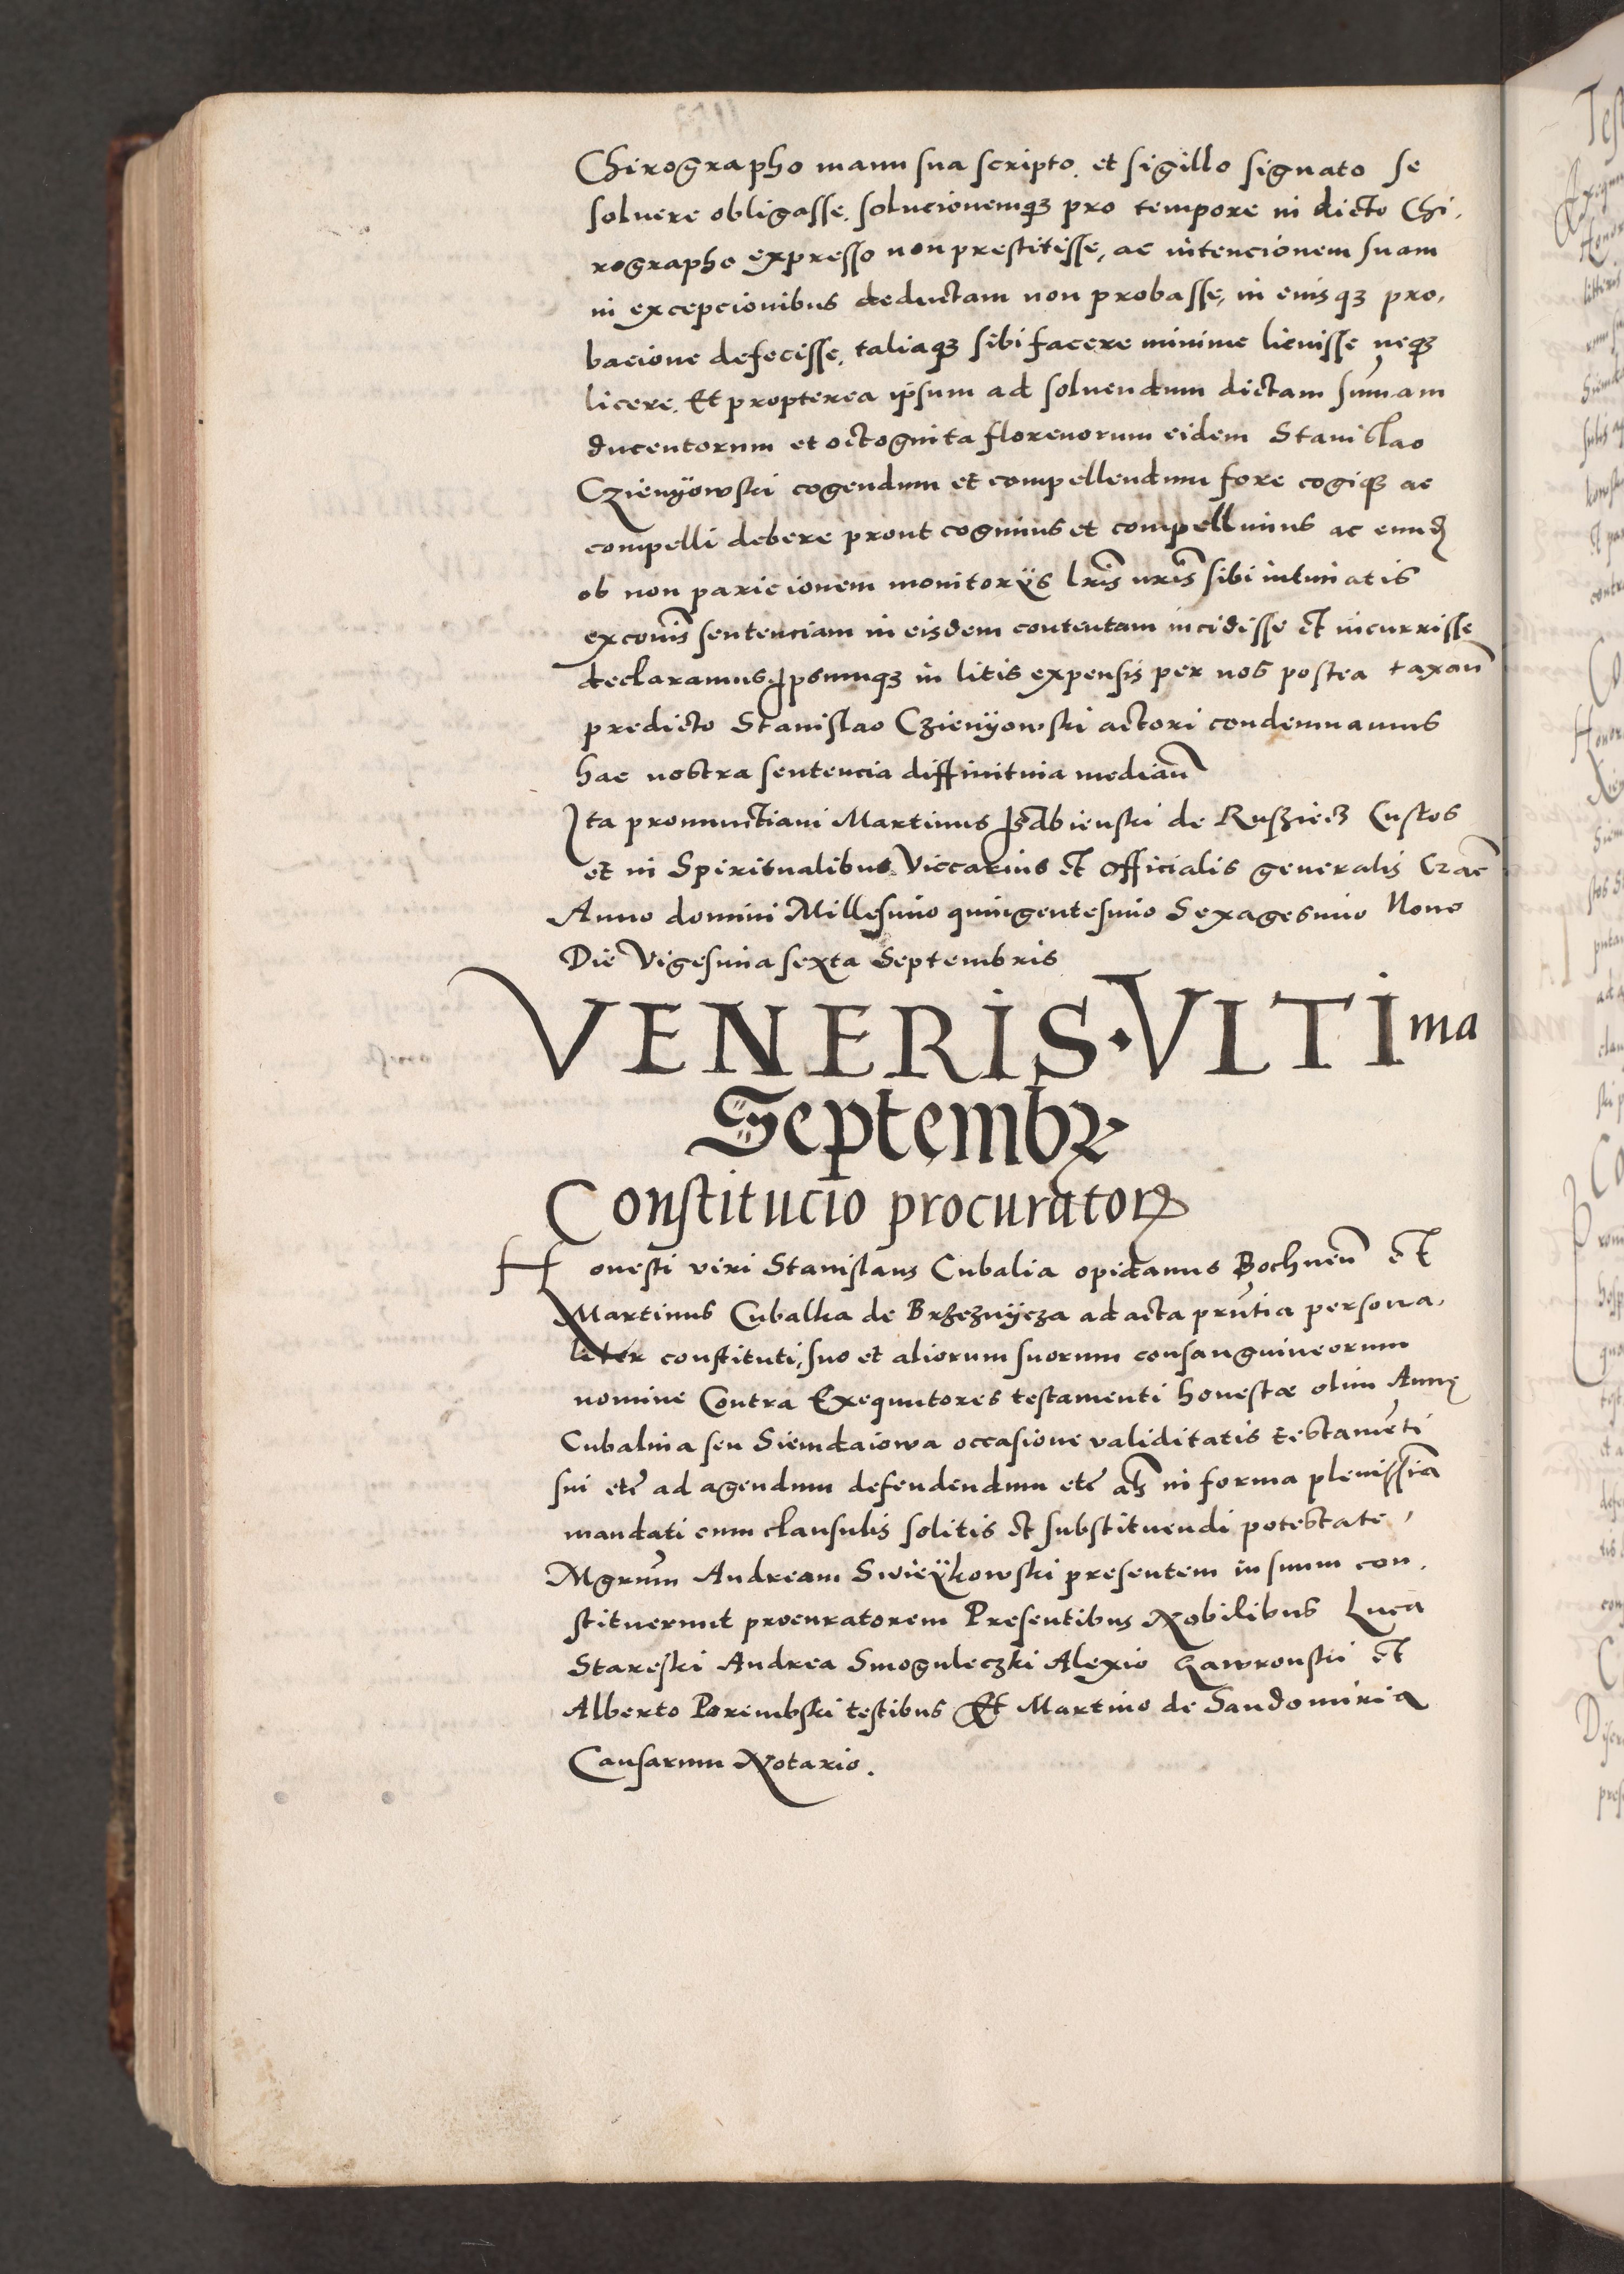 Chirographo manu sua scripto. et sigillo signato se
soluere obligasse. solucionemq3 pro tempore in dicto Chi,
rographo expresso non prestitisse, ac intencionem suam
in excepcionibus deductam non probasse, in eiusq3 pro,
bacione defecisse, taliaq3 sibi facere minime licuisse neq3
licere. Et propterea ipsum ad soluendum dictam sum̄am
ducentorum et octoginta florenorum eidem Stanislao
Czienÿowski cogendum et compellendum fore cogiq3 ac
compelli debere prout cogimus et compellimus ac eund
ob non paricionem monitorÿs lr̄is nr̄is sibi intimatis
excōnis sentenciam in eisdem contentam incidisse et incurrisse
declaramus, Ipsumq3 in litis expensis per nos postea taxan̄
predicto Stanislao Czienÿowski actori condemnamus
hac nostra sentencia diffinitiua median̄
Ita pronunctiaui Martinus Isdbienski de Rusziecz Custos
et in Spiritualibus Viccarius et Officialis generalis Crac̄
Anno domini Millesimo quingentesimo Sexagesimo Nono
Die Vigesima sexta Septembris
VENERIS·VLTIma
Septembr
Constitucio procurator
Honesti viri Stanislaus Cubalia opidanus Bochnen̄ et
Martinus Cubalka de Brzeznÿcza ad acta prn̄tia persona,
liter constituti, suo et aliorum suorum consanguineorum
nomine Contra Exequutores testamenti honestæ olim Annę
Cubalina seu Siemdaiowa occasione validitatis testamenti
sui etc̄ ad agendum defendendum etc̄ al̄s in forma plenissīa
mandati cum clausulis solitis et substituendi potestate,
Mgrum̄ Andream Swieÿkowski presentem in suum con,
stituerunt procuratorem Presentibus Nobilibus Luca
Stareski Andrea Smoguleczki Alexio Gawronski et
Alberto Porembski testibus Et Martino de Sandomiria
Causarum Notario.